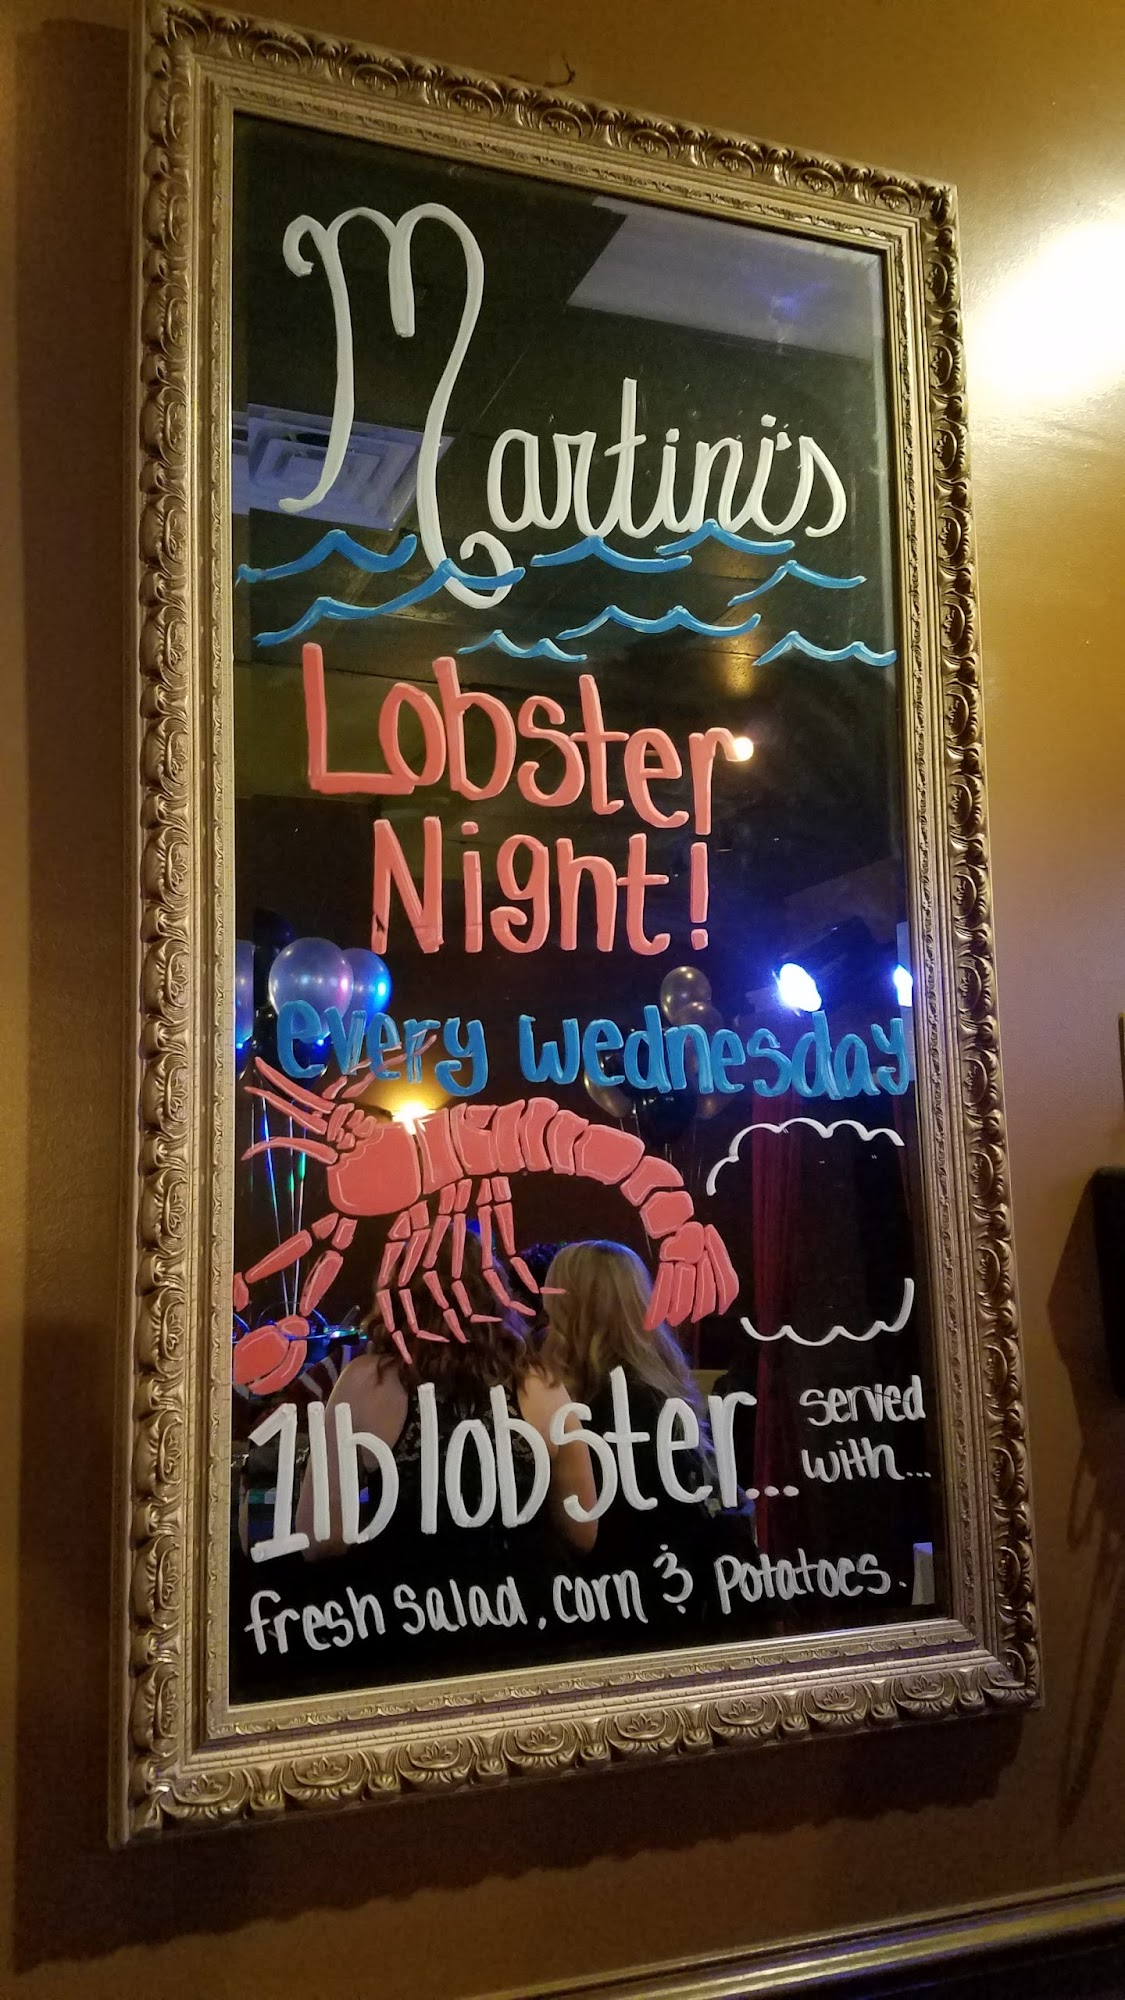 Martini's
Lobster
Night!
every wednesday
1lb lobster... served
with...
fresh salad, corn & potatoes.